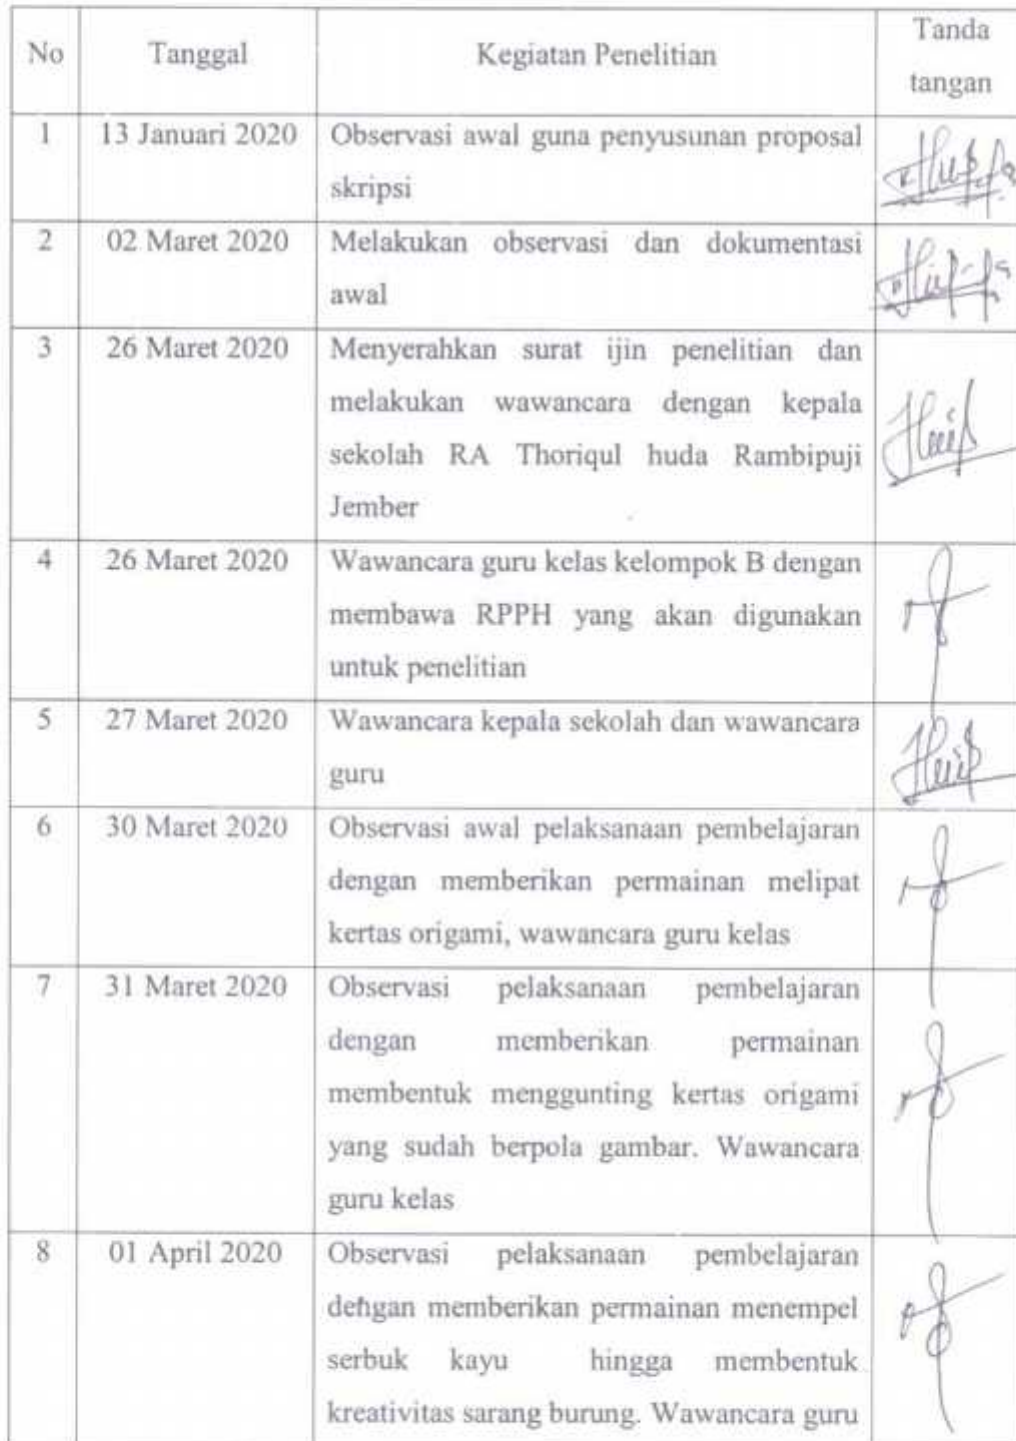 No Tanggal Kegiatan Penelitian Tanda tangan
1 13 Januari 2020 Observasi awal guna penyusunan proposal
skripsi
2 02 Maret 2020 Melakukan observasi dan dokumentasi
awal
3 26 Maret 2020 Menyerahkan surat ijin penelitian dan
melakukan wawancara dengan kepala
sekolah RA Thoriqul huda Rambipuji
Jember
4 26 Maret 2020 Wawancara guru kelas kelompok B dengan
membawa RPPH yang akan digunakan
untuk penelitian
5 27 Maret 2020 Wawancara kepala sekolah dan wawancara
guru
6 30 Maret 2020 Observasi awal pelaksanaan pembelajaran
dengan memberikan permainan melipat
kertas origami, wawancara guru kelas
7 31 Maret 2020 Observasi pelaksanaan pembelajaran
dengan memberikan permainan
membentuk menggunting kertas origami
yang sudah berpola gambar. Wawancara
guru kelas
8 01 April 2020 Observasi pelaksanaan pembelajaran
dengan memberikan permainan menempel
serbuk kayu hingga membentuk
kreativitas sarang burung. Wawancara guru